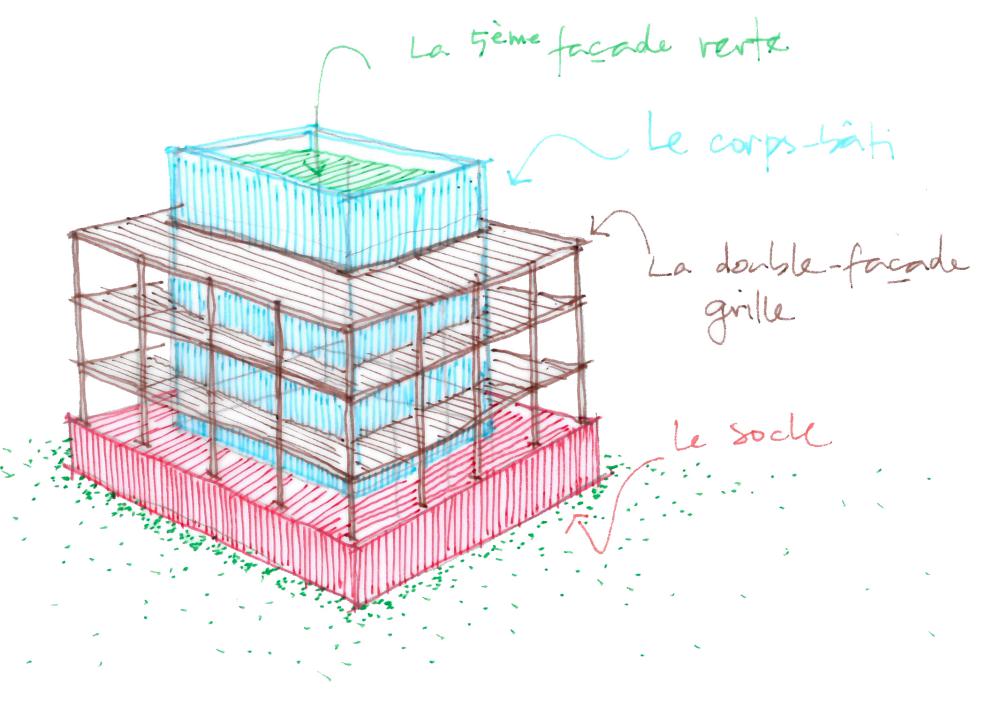 La 5ème façade verte
Le corps-bâti
La double-façade
grille
Le socle